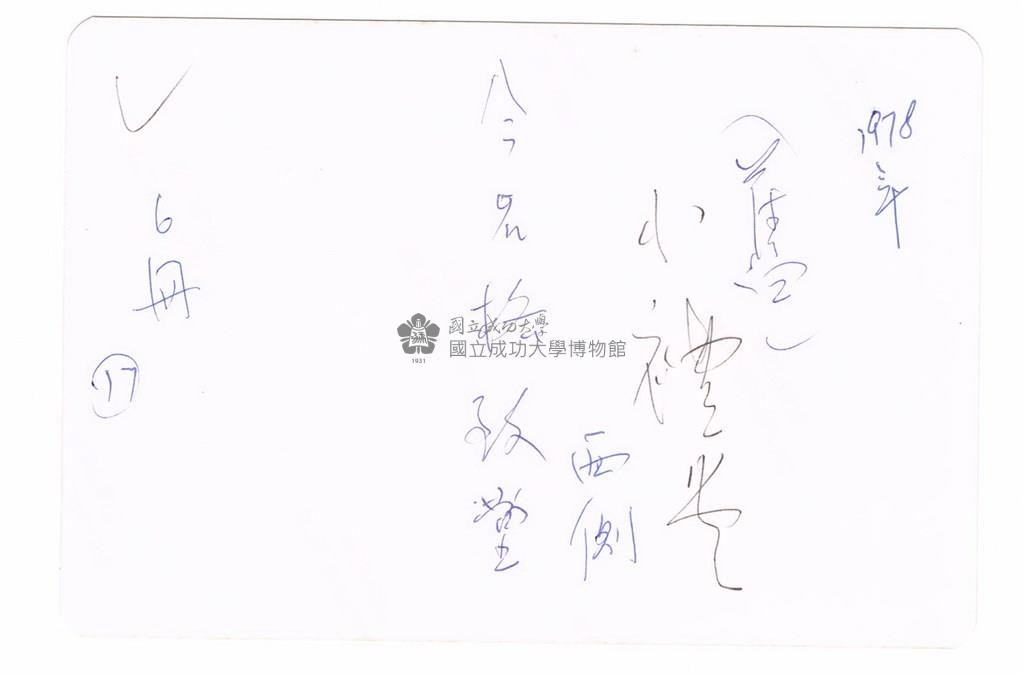 1978年
(舊)
小禮堂
西側
今名格致堂
6冊
17
國立成功大學
國立成功大學博物館
1931